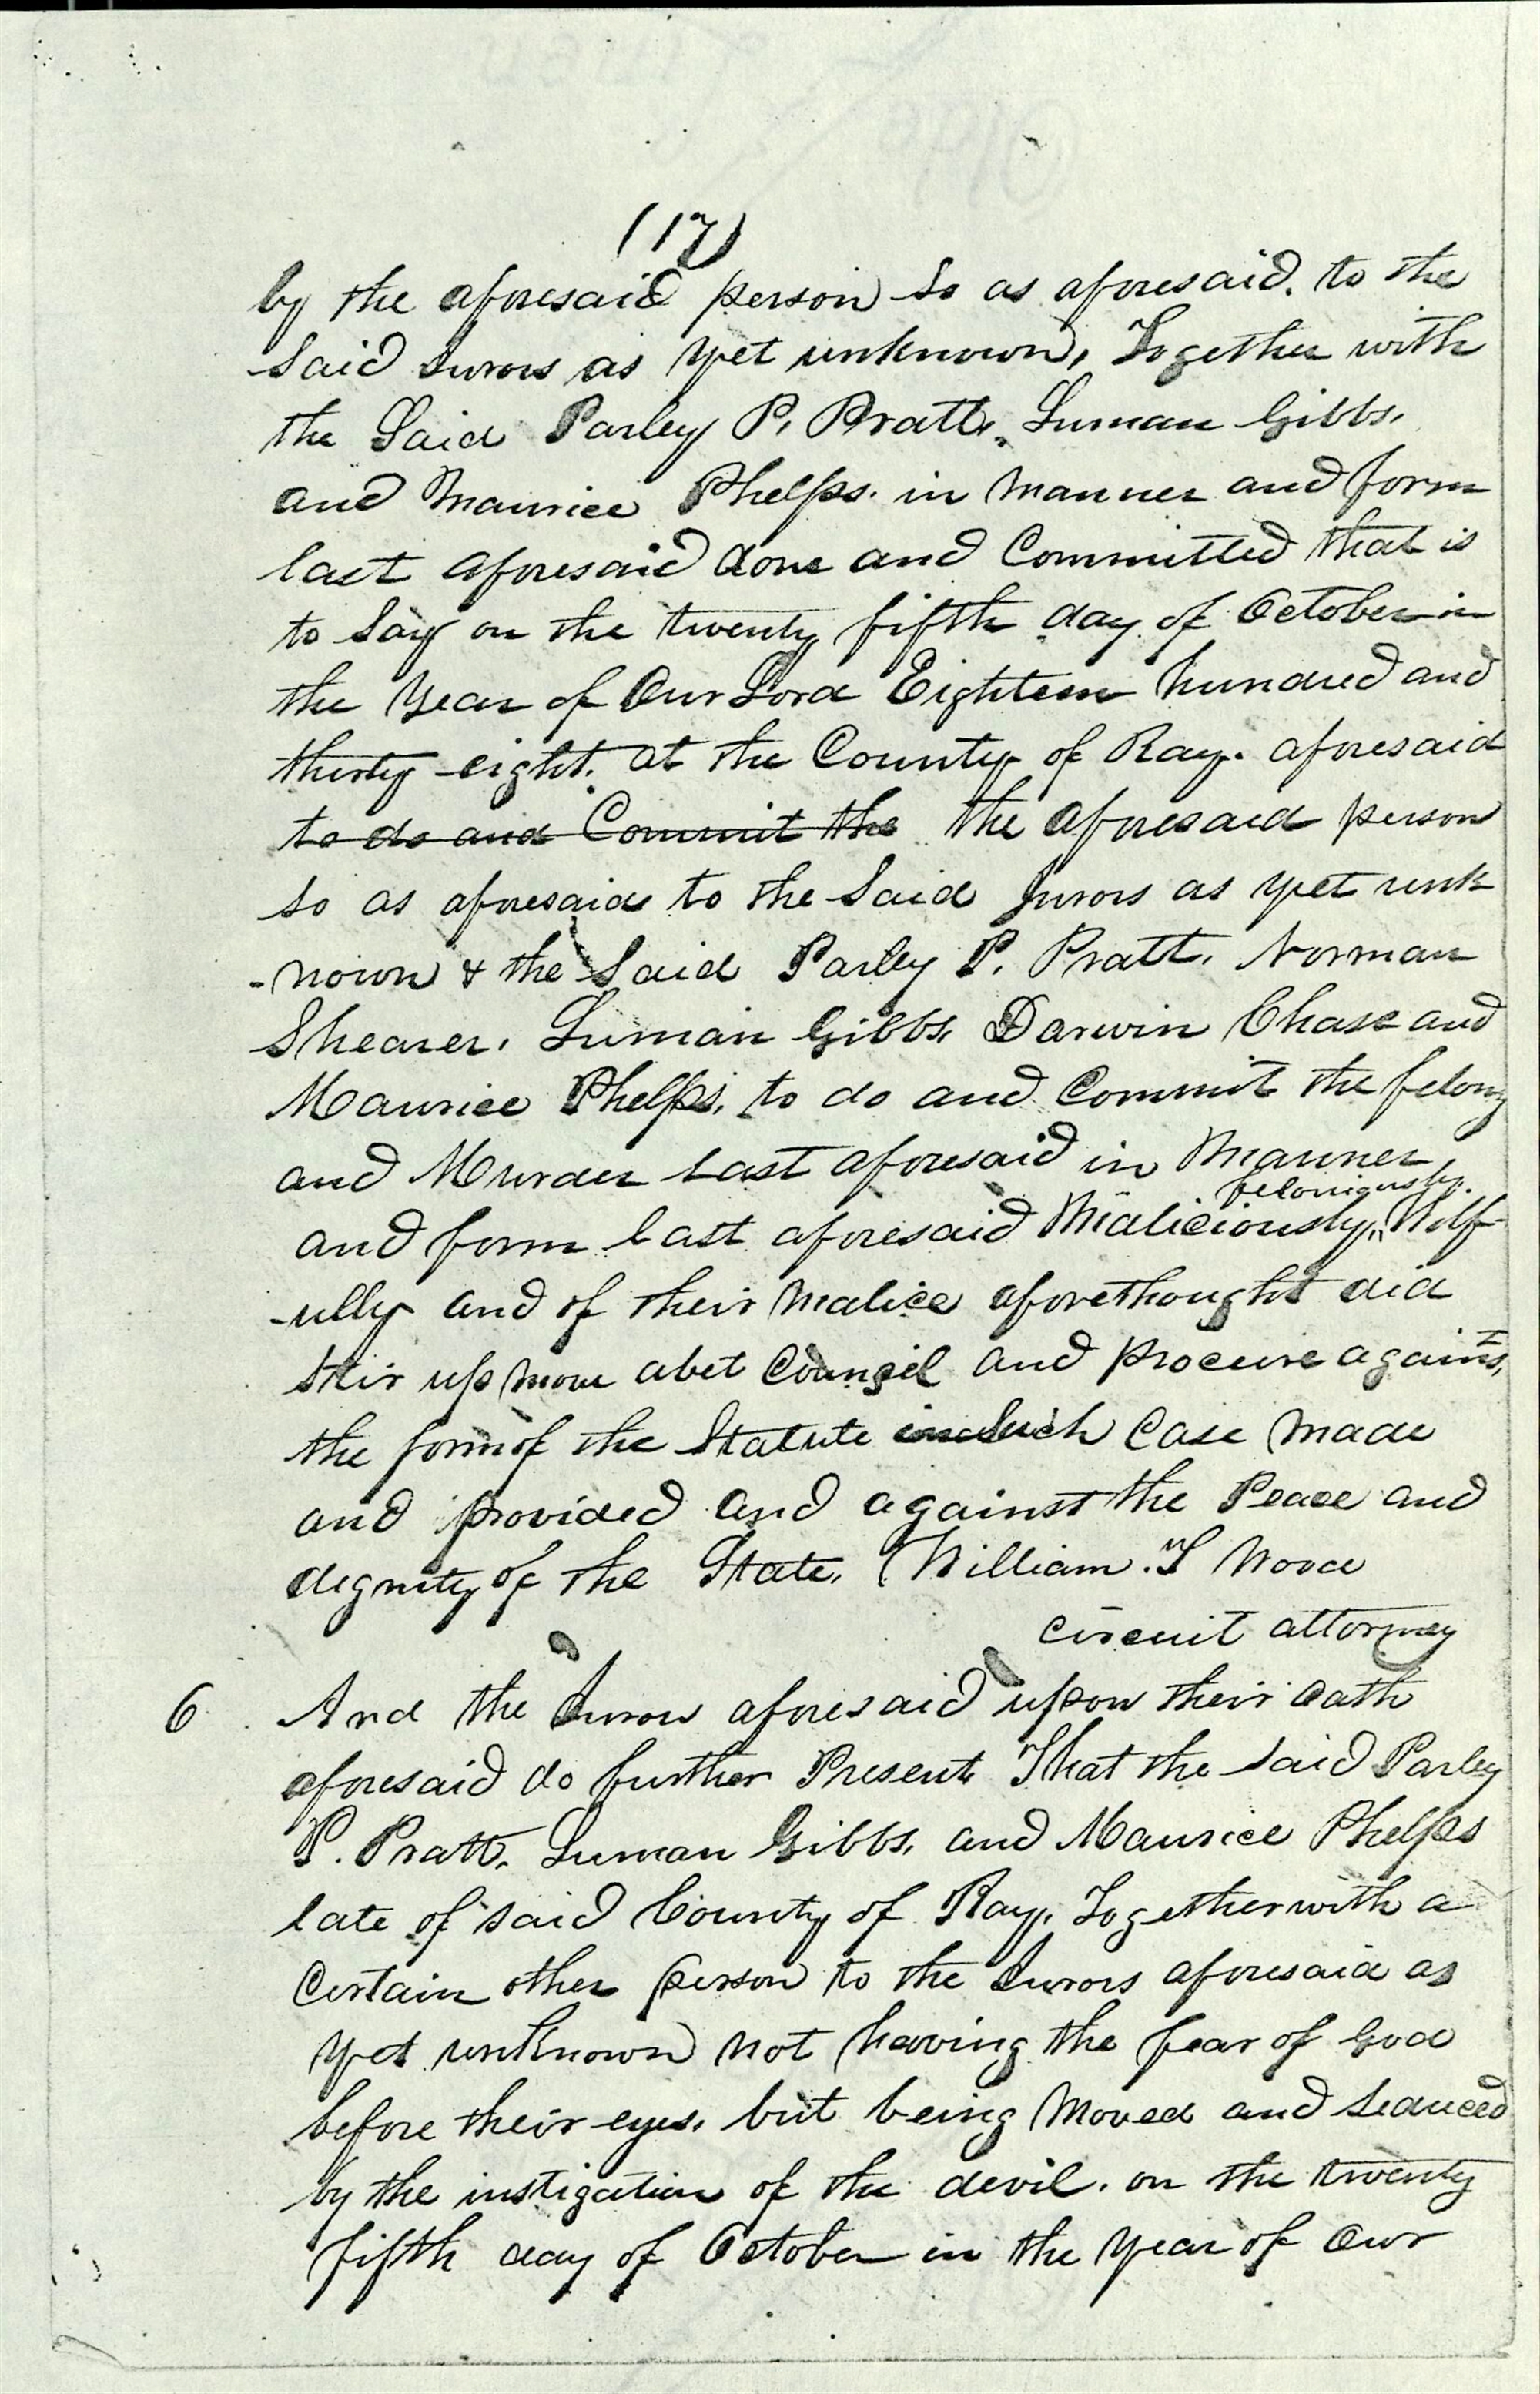 (17)
by the aforesaid person so as aforesaid. to the
said Jurors as yet unknown, Together with
the Said Parley P. Pratt, Luman Gibbs,
and Maurice Phelps. in manner and form
last aforesaid done and Committed that is
to Say on the twenty fifth day of October in
the Year of Our Lord Eighteen hundred and
thirty eight. at the County of Ray. aforesaid
to do and Commit the the aforesaid person
so as aforesaid to the Said Jurors as yet unk
-nown & the Said Parley P. Pratt. Norman
Shearer. Luman Gibbs, Darwin Chase and
Maurice Phelps, to do and Commit the felony
and Murder last aforesaid in Manner
feloniously.
and form last aforesaid Maliciously, Wilf
-ully and of their Malice aforethought did
stir up move abet Council and procure against,
the form of the Statute in Such Case Made
and provided and against the Peace and
dignity of the State. William. T Wood
circuit attorney
6 And the Jurors aforesaid upon their Oath
aforesaid do further Present That the said Parley
P. Pratt. Luman Gibbs, and Maurice Phelps
late of said County of Ray. Together with a
Certain other person to the Jurors aforesaid as
yet unknown not having the fear of God
before their eyes, but being Moved and Seduced
by the instigation of the devil. on the twenty
fifth day of October in the Year of Our